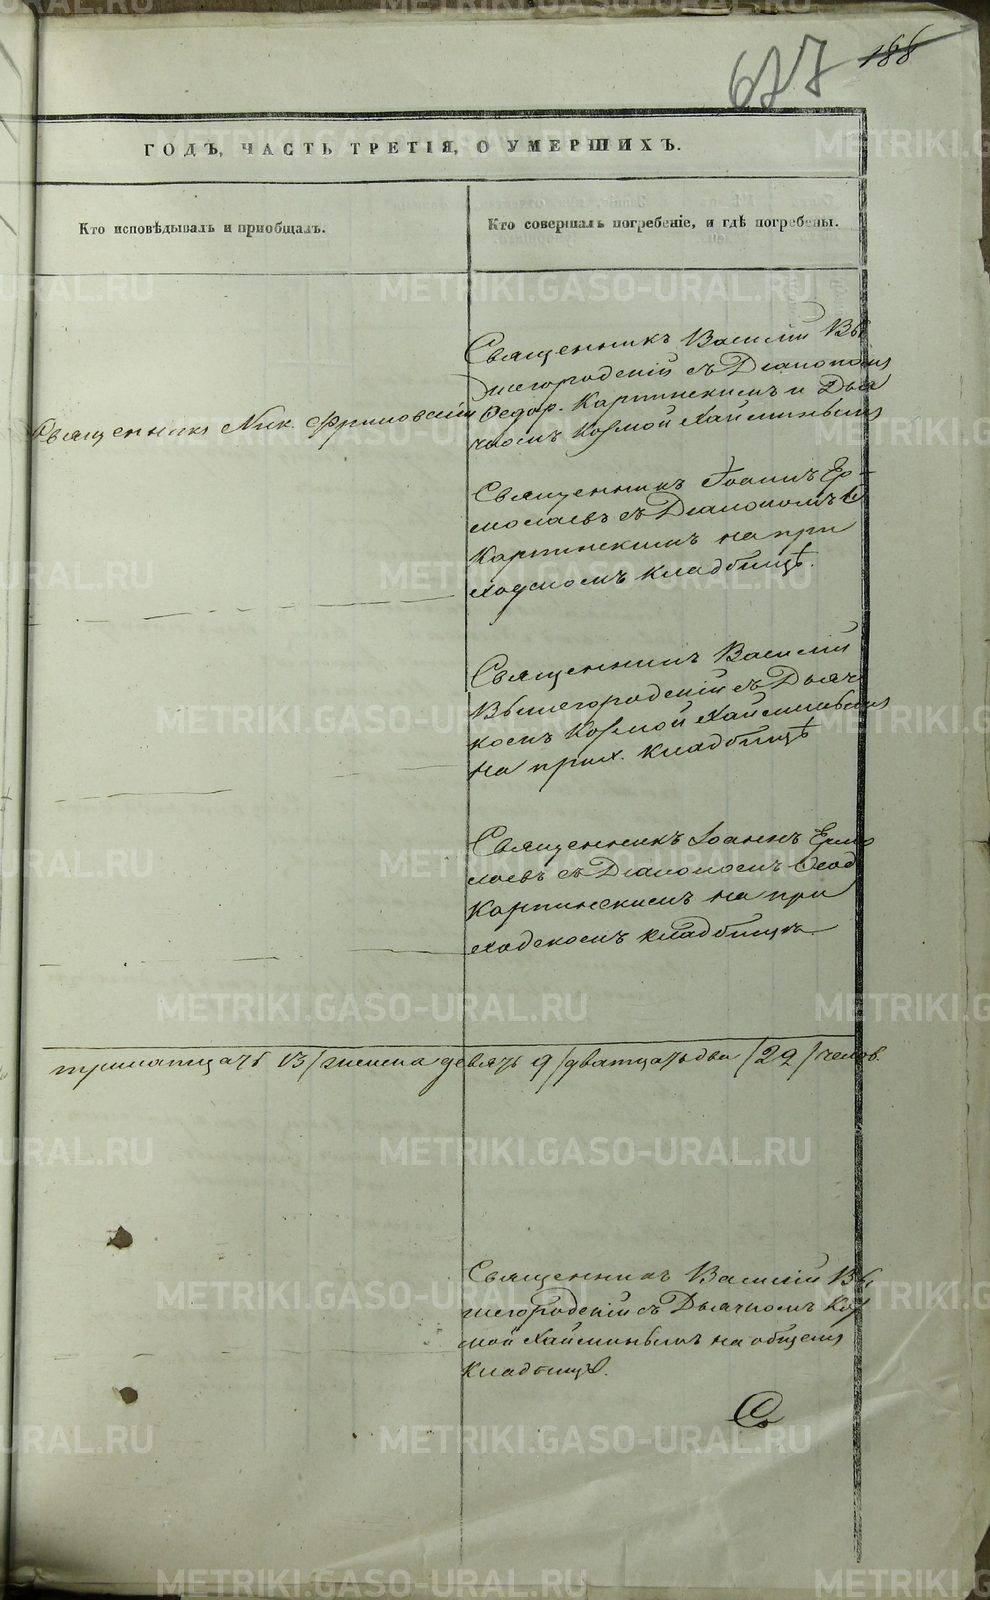 677 188
ГОДЪ, ЧАСТЬ ТРЕТІЯ, О УМЕРШИХЪ.
Кто исповѣдывалъ и пріобщалъ.
Кто совершалъ погребеніе, и гдѣ погребены.
Священникъ Василій Вы
шегородскій съ Діакономъ
Священникъ Ник.
Ѳеодор. Карпинскимъ и Дья
чкомъ Козмой Хайминымъ
Священникъ Іоаннъ Ер-
молаевъ съ Діакономъ Ѳ
Карпинскимъ на при
ходскомъ кладбищѣ.
Священникъ Василій
Вышегородскій съ Дьяч
комъ Козмой Хайминымъ
на прих. кладбищѣ
Священникъ Іоаннъ Ермо
лаевъ съ Діакономъ Ѳеод
Карпинскимъ на при
ходскомъ кладбищѣ
тринатцать 13/ женска девять 9/ дватцать два /22/ челов.
Священникъ Василій Вы
шегородскій съ Дьячкомъ Коз
мой Хайминымъ на общемъ
кладбищѣ.
METRIKI.GASO-URAL.RU